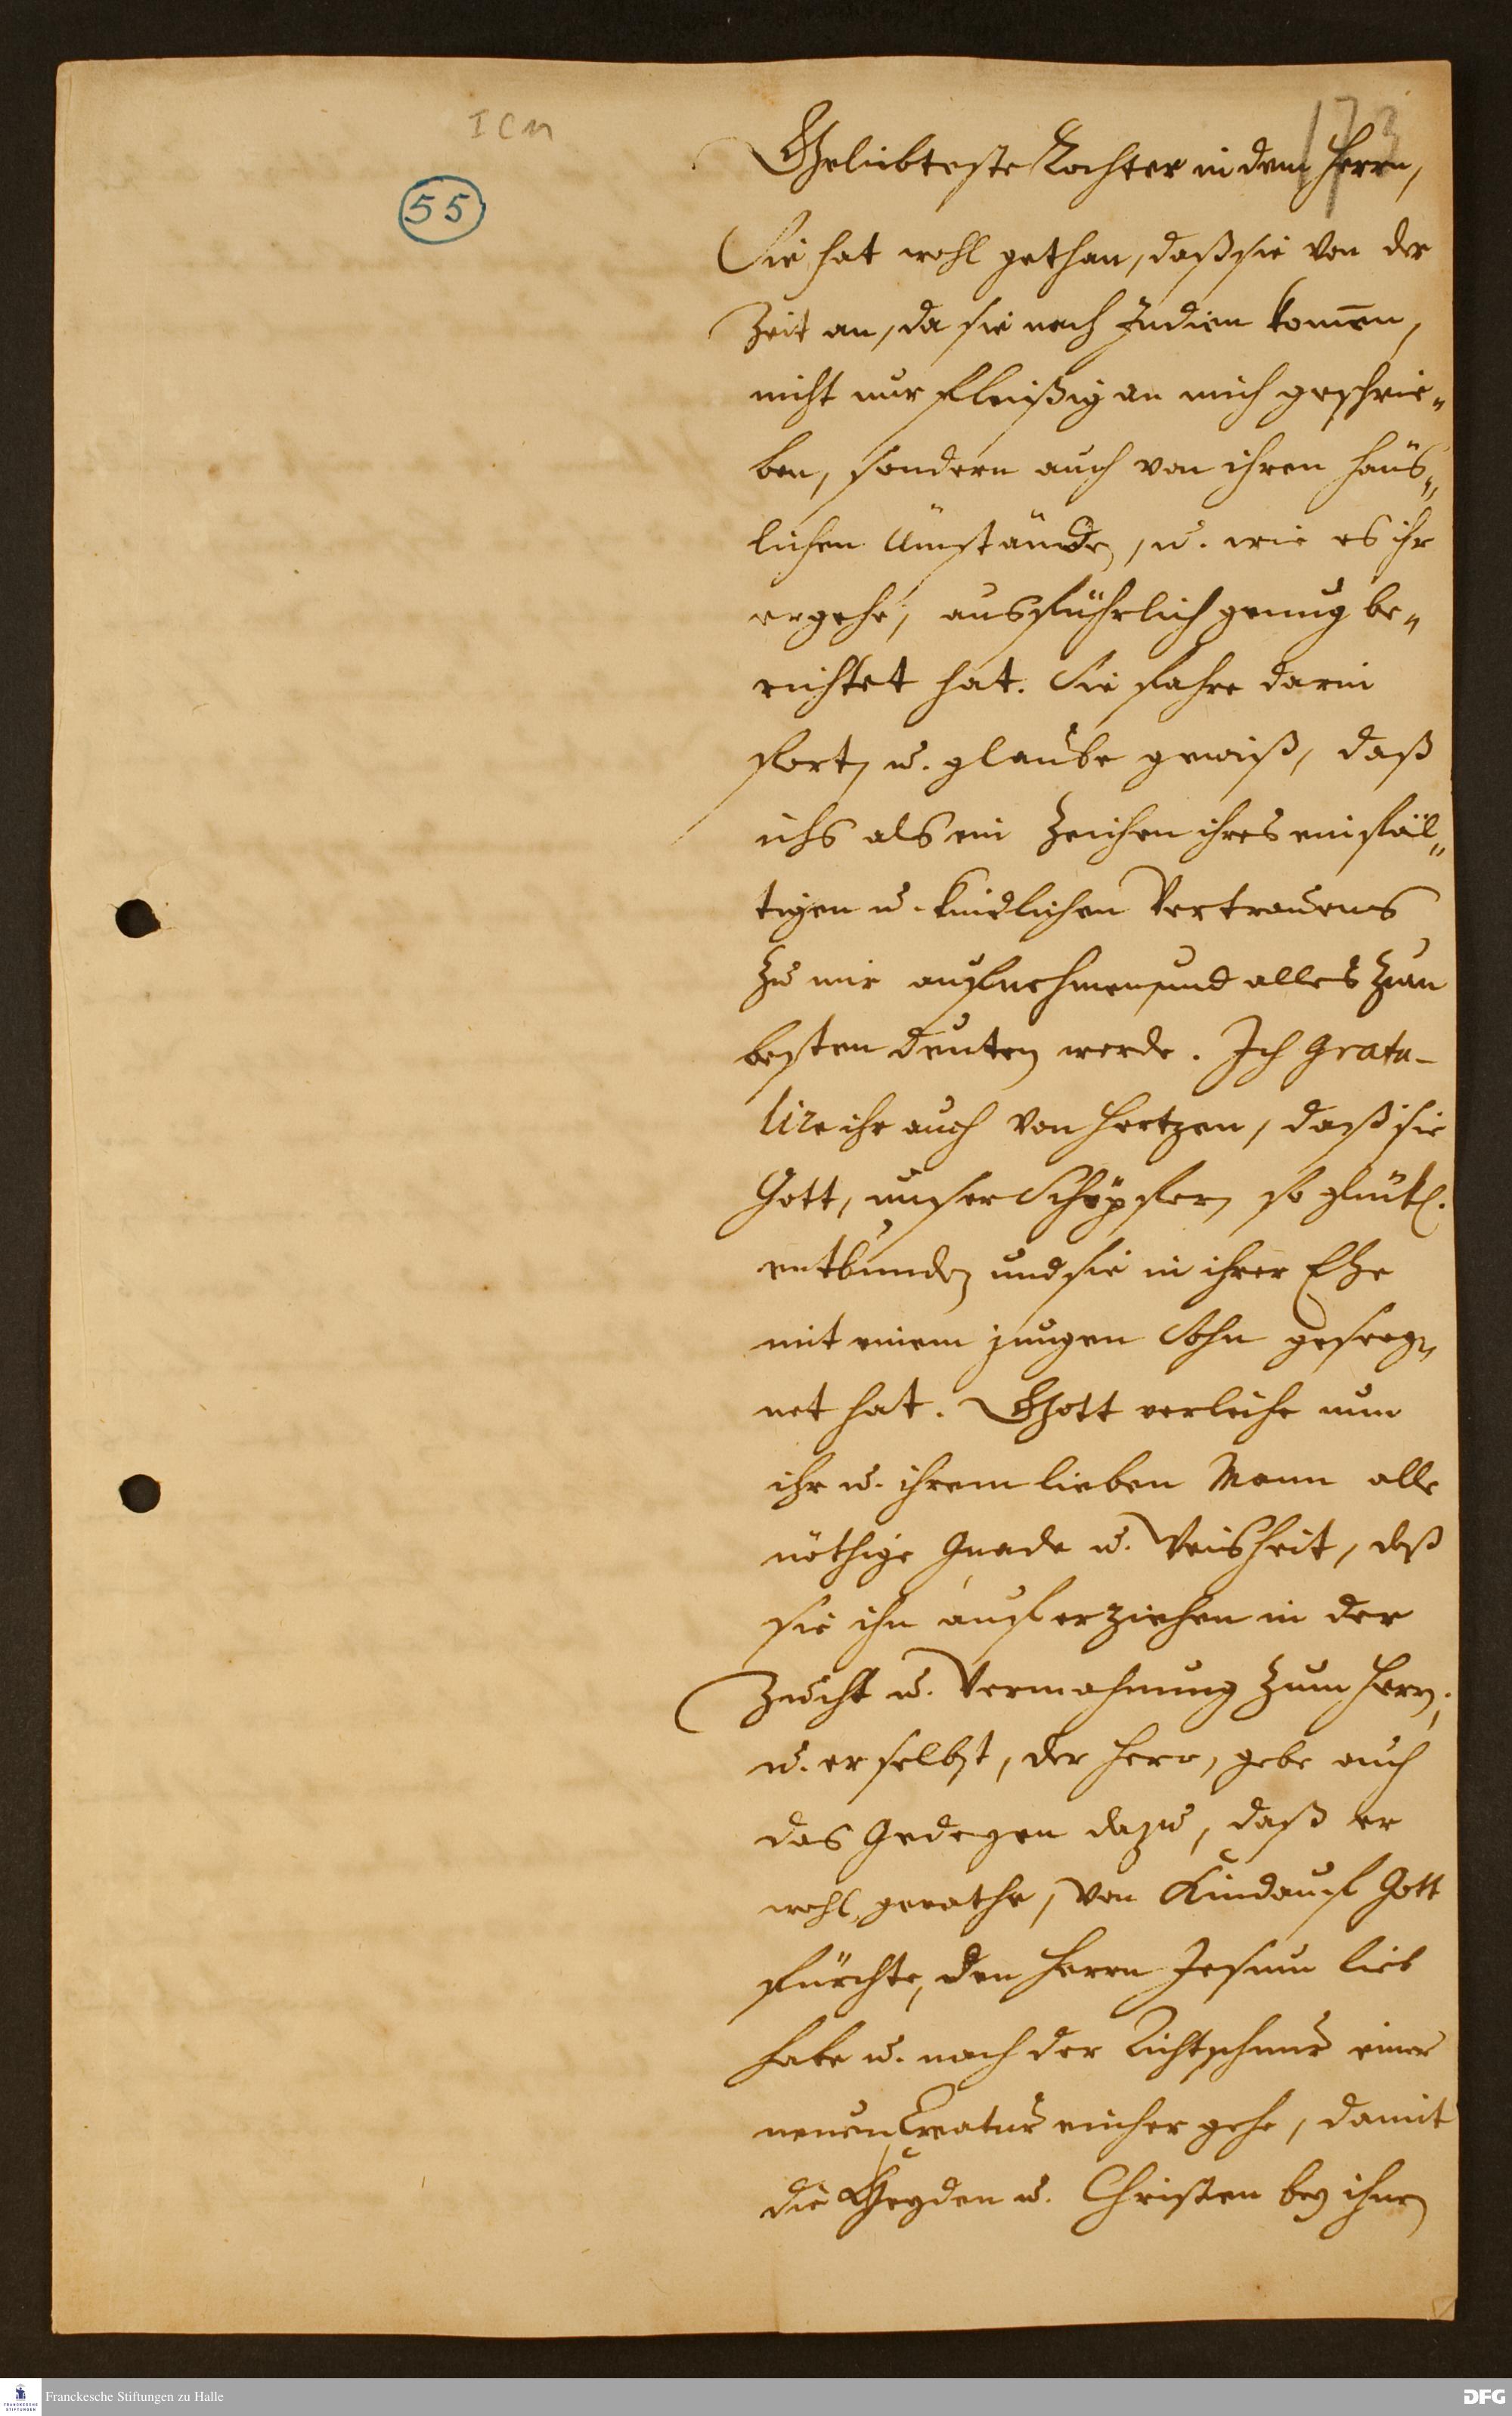 I C 11
173
55
Geliebteste Tochter in dem Herrn,
Sie hat wohl gethan, daß sie von der
Zeit an, da sie nach Indien kom̄en,
nicht nur fleißig an mich geschrie„
ben, sondern auch von ihren häus„
lichen Umständen, u. wie es ihr
ergehe, ausführlich genug be„
richtet hat. Sie fahre darin
fort, u. glaube gewiß, daß
ichs als ein Zeichen ihres einfäl„
tigen u. kindlichen Vertrauens
zu mir aufnehmen, und alles zum
besten deuten werde. Ich gratu-
lire ihr auch von Hertzen, daß sie
Gott, unser Schöpfer, so glückl.
entbunden und sie in ihrer Ehe
mit einem jungen Sohn geseeg„
net hat. Gott verleihe nun
ihr u. ihrem lieben Mann alle
nöthige Gnade u. Weisheit, daß
sie ihn auferziehen in der
Zucht u. Vermahnung zum Herrn;
u. er selbst, der Herr, gebe auch
das Gedeyen dazu, daß er
wohl gerathe, von Kind auf Gott
fürchte, den Herrn Jesum lieb
habe u. nach der Richtschnur einer
neuen Creatur einher gehe, damit
die Heyden u. Christen bey ihnen
Franckesche Stiftungen zu Halle
FRANCKESCHE STIFTUNGEN
DFG